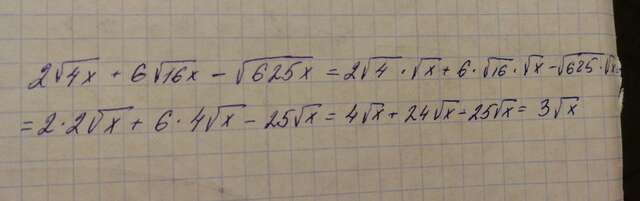 2√4x + 6√16x − √625x = 2√4 · √x + 6 · √16 · √x − √625 · √x =
= 2 · 2√x + 6 · 4√x − 25√x = 4√x + 24√x − 25√x = 3√x